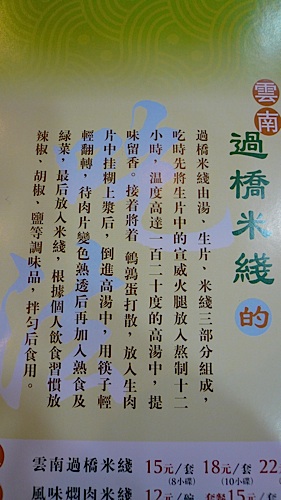 雲南
過橋米綫
的
過橋米綫由湯、生片、米綫三部分組成，
吃時先將生片中的宣威火腿放入熬制十二
小時，溫度高達一百二十度的高湯中，提
味留香。接着將着鵪鶉蛋打散，放入生肉
片中挂糊上漿后，倒進高湯中，用筷子輕
輕翻轉，待肉片變色熟透后再加入熟食及
綠菜，最后放入米綫，根據個人飲食習慣放
辣椒、胡椒、鹽等調味品，拌勻后食用。
雲南過橋米綫 15元/套 18元/套 22
(8小碟) (10小碟)
風味燜肉米綫 12元/碗 套餐15元/套